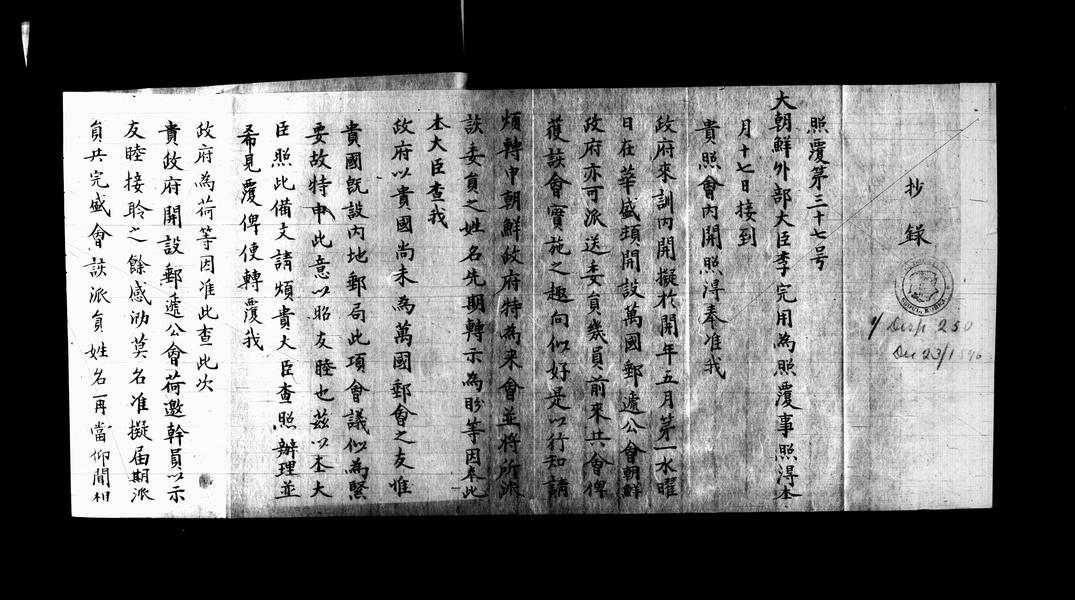 抄錄
照覆第三十七号
大朝鮮外部大臣李完用為照覆事照得本
月十七日接到
貴照會內開照得奉准我
政府來訓內開擬於開年五月第一水曜
日在華盛頓開設萬國郵遞公會朝鮮
政府亦可派送委員幾員前來共會俾
獲該會實施之趣向似好是以行知請
煩轉申朝鮮政府特為來會並將所派
該委員之姓名先期轉示為盼等因奉此
本大臣查我
政府以貴國尚未為萬國郵會之友惟
貴國旣設內地郵局此項會議似為緊
要故特申此意以昭友睦也茲以本大
臣照此備文請煩貴大臣查照辦理並
希見覆俾便轉覆我
政府為荷等因准此查此次
貴政府開設郵遞公會荷邀幹員以示
友睦接聆之餘感泐莫名准擬届期派
員共完盛會該派員姓名再當仰聞相
Disp 250
Dec 23/1896